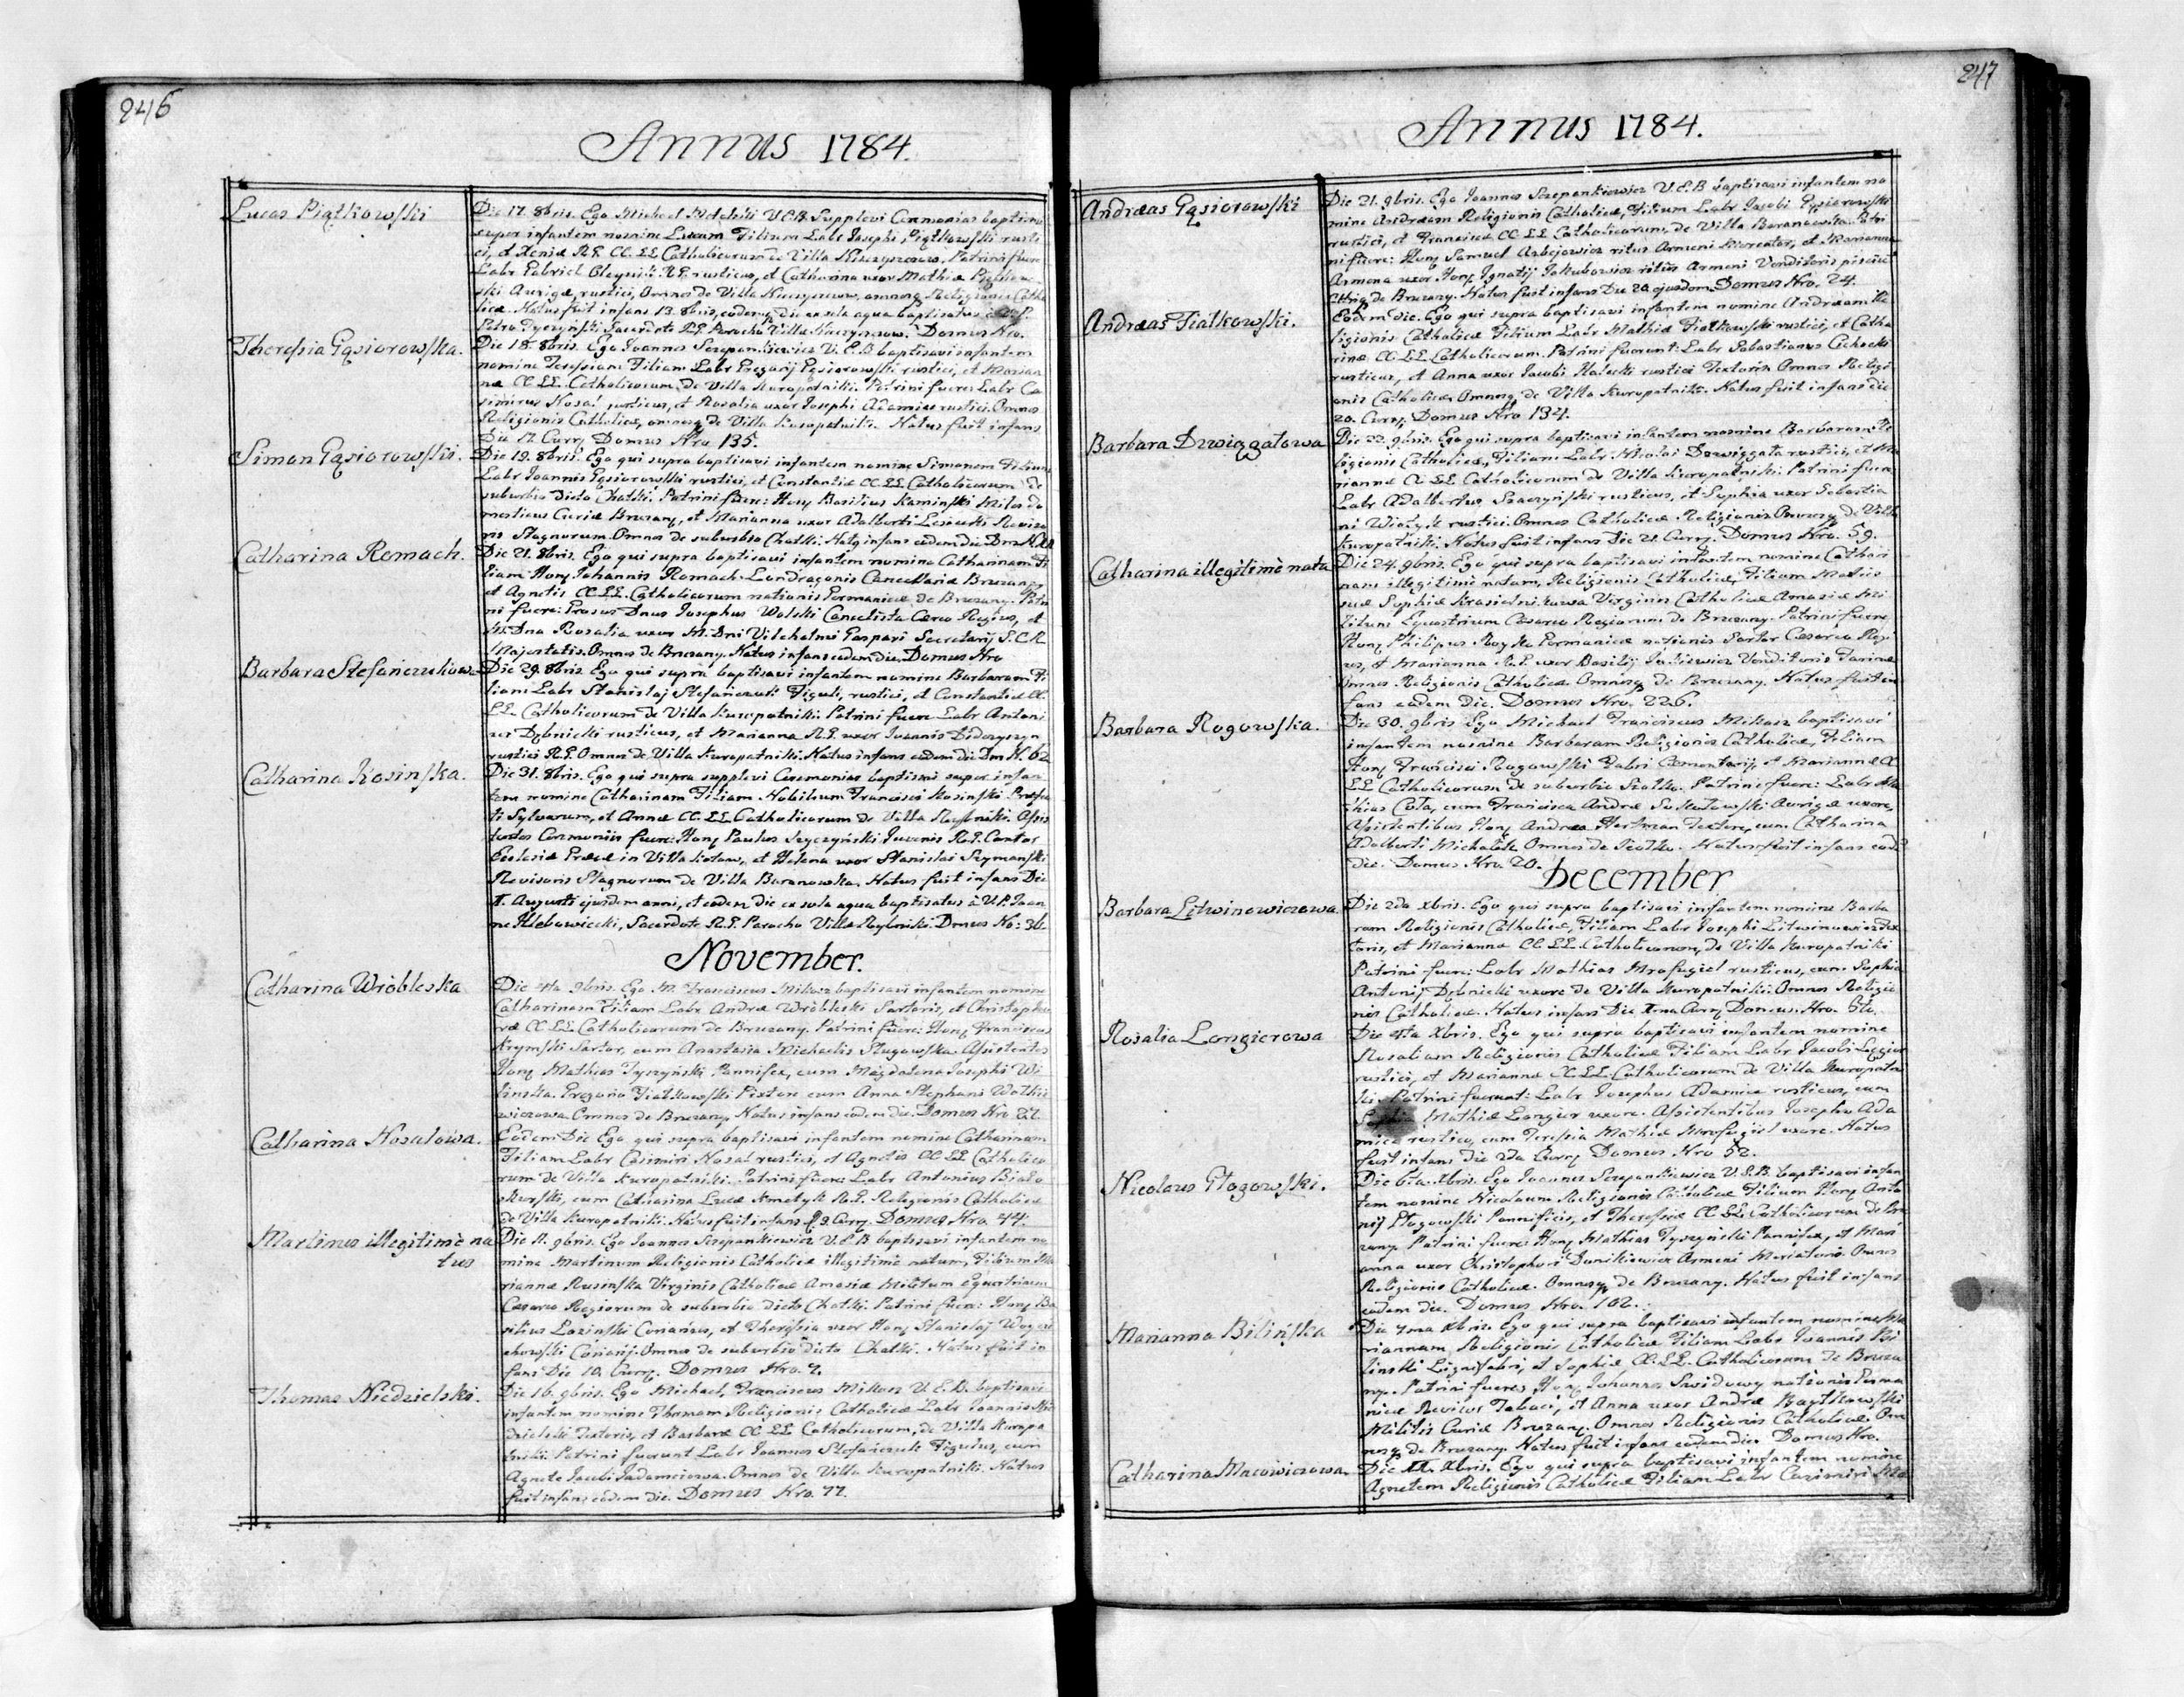 246
Annus 1784.
Lucas Piątkowski
Die 17. 8bris. Ego Michael U.E.B. Supplevi Ceremonias baptismi
super infantem nomine Lucam Filium Labr Josephi Piątkowski rusti
ci, et Xeniæ R.G. CC. LL Catholicorum de Villa Patrini fuere
Labr Gabriel R.G. rusticus, et Catharina uxor Mathiæ Piątkow
ski Aurigæ, rustici, Omnes de Villa omnesq Religionis Catho
licæ. Natus fuit infans 13. 8bris, eademq die ex sola aqua baptisatus
Petro Tyczyński Sacerdote R.G. Parocho Villæ Domus Nro.
Theressia Gąsiorowska.
Die 18. 8bris. Ego Joannes Szepankiewicz V.E.B baptisavi infantem
nomine Teressiam Filiam Labr Gregorij Gąsiorowski rustici, et Marian
næ CC LL. Catholicorum, de Villa Kuropatniki. Patrini fuere: Labr Ca
simirus Nosal rusticus, et Rosalia uxor Josephi Adamice rustici. Omnes
Religionis Catholicæ, omnesq de Villa Kuropatniki. Natus fuit infans
Die 17. Curr. Domus Nro. 135.
Simon Gąsiorowski.
Die 19. 8bris. Ego qui supra baptisavi infantem nomine Simonem Filium
Labr Joannis Gąsiorowski rustici, et Constantiæ CC LL Catholicorum de
suburbio dicto Chatki. Patrini fuere: Hony Basilius Kaminski Miles do
mesticus Curiæ Brezany, et Marianna uxor Adalberti Reviso
ris Stagnorum. Omnes de suburbio Chatki. Natq infans eadem die
Catharina Romach.
Die 21. 8bris. Ego qui supra baptisavi infantem nomine Catharinam Fi
liam Hony Johannis Romach Cancellariæ Brezany
et Agnetis CC LL. Catholicorum nationis Germanicæ de Brezany. Patri
ni fuere: Dnus Josephus Wolski Cancelista Cæreo Regius, et
M. Dna Rosalia uxor M. Dni Vilehelmi Gaspari Secretarij S.C.R.
Majestatis. Omnes de Brezany. Natus infans eadem die. Domus Nro
Barbara Stefanczukowa
Die 29. 8bris Ego qui supra baptisavi infantem nomine Barbaram Fi
liam Labr Stanislaj Stefanczuk Figuli, rustici, et Constantiæ CC.
LL. Catholicorum de Villa Kuropatniki. Patrini fuere Labr Antoni
us Dębnicki rusticus, et Marianna R.G. uxor Joannis
rustici R.G. Omnes de Villa Kuropatniki. Natus infans eadem die Dm N. 62
Catharina Kosinska.
Die 31. 8bris. Ego qui supra supplevi Ceremonias baptismi super infan
tem nomine Catharinam Filiam Nobilium Francisci Kosinski Præfec
ti Sylvarum, et Annæ CC. LL Catholicorum de Villa Assis
tentes Ceremoniis fuere: Hony Paulus Juvenis R.G. Cantor
Ecclesiæ in Villa et Helena uxor Stanislai Szymanski
Revisoris Stagnorum de Villa Baranowka. Natus fuit infans Die
Augusti ejusdem anni, et eadem die ex sola aqua baptisatus à V.P. Joan
ne Sacerdote R.G. Parocho Villæ Domus No: 36.
November.
Catharina Wróbleska
Die 4ta 9bris. Ego M. Franciscus Mikosz baptisavi infantem nomine
Catharinam Filiam Labr Andreæ Wróbleski Sartoris, et Christopho
ræ CC. LL. Catholicorum de Brezany. Patrini fuere: Hony Franciscus
Krymski Sartor, cum Anastasia Michaelis Assistentes
Hony Mathias Tyszyński Pannifex, cum Magdalena Josephi Wi
linska. Gregorio Fiałkowski Pistore cum Anna Stephani
Omnes de Brezany. Natus infans eadem die. Domus Nro 22.
Catharina Nosalowa.
Eodem Die Ego qui supra baptisavi infantem nomine Catharinam
Filiam Labr Casimiri Nosal rustici, et Agnetis CC LL Catholico
rum de Villa Kuropatniki. Patrini fuere: Labr Antonius Biało
skurski, cum Catharina Lucæ Kmetyk R.G. Religionis Catholicæ
de Villa Kuropatniki. Natus fuit infans 9. Curr. Domus Nro. 44.
Martinus illegitimè na
tus
Die 11. 9bris. Ego Joannes Szepankiewicz V.E.B baptisavi infantem no
mine Martinum Religionis Catholicæ illegitimè natum, Filium Ma
riannæ Rusinska Virginis Catholicæ Amasiæ Militum Equestrium
Cæsareo Regiorum de suburbio dicto Chatki. Patrini fuere: Hony Ba
silius Łozinski Coriarius, et Theressia uxor Hony Stanislaj
Coriarij. Omnes de suburbio dicto Chatki. Natus fuit in
fans Die 10. Curr. Domus Nro. 9.
Thomas Niedzielski.
Die 16. 9bris. Ego Michael Franciscus Mikosz V.E.B. baptisavi
infantem nomine Thomam, Religionis Catholicæ Labr Joannis Nie
dzielski Textoris, et Barbaræ CC LL Catholicorum, de Villa Kuropa
tniki. Patrini fuerunt Labr Joannes Stefanczuk Figulus, cum
Agnete Jacobi Omnes de Villa Kuropatniki. Natus
fuit infans eadem die. Domus Nro. 77.
247
Annus 1784.
Andreas Gąsiorowski
Die 21. 9bris. Ego Joannes Szepankiewicz V.E.B baptisavi infantem no
mine Andream Religionis Catholicæ, Filium Labr Jacobi Gąsiorowski
rustici, et Franciscæ CC LL Catholicorum, de Villa Baranowka. Patri
ni fuere: Hony Samuel ritus Armeni Mercator, et Marianna
Armena uxor Hony Ignatij Jakubowicz ritûs Armeni Venditoris
de Brezany. Natus fuit infans Die 20 ejusdem. Domus Nro. 24.
Andreas Fialkowski.
Eodem die. Ego qui supra baptisavi infantem nomine Andream Re
ligionis Catholicæ Filium Labr Mathiæ Fialkowski rustici, et Catha
rinæ CC. LL. Catholicorum. Patrini fuerunt: Labr Sebastianus Cichocki
rusticus, et Anna uxor Jacobi rustici Textoris. Omnes Religi
onis Catholicæ. Omnesq de Villa Kuropatniki. Natus fuit infans die
20. Curr. Domus Nro 134.
Barbara Dzwiągatowa
Die 22. 9bris. Ego qui supra baptisavi infantem nomine Barbaram Re
ligionis Catholicæ, Filiam Labr Nicolai Dzwiągata rustici, et Ma
riannæ CC LL Catholicorum de Villa Kuropatniki. Patrini fuere
Labr Adalbertus rusticus, et Sophia uxor Sebastia
ni rustici. Omnes Catholicæ Religionis. Omnesq de Villa
Kuropatniki. Natus fuit infans Die 21. Curr. Domus Nro. 59.
Catharina illegitimè nata
Die 24. 9bris. Ego qui supra baptisavi infantem nomine Cathari
nam illegitimè natam, Religionis Catholicæ, Filiam Matris
suæ Sophiæ Virginis Catholicæ Amasiæ Mi
litum Equestrium Cæsareo Regiorum de Brezany. Patrini fuere
Hony Philipus Germanicæ nationis Sartor Cæsareo Regi
us, et Marianna R.G. uxor Basilij Venditoris Farinæ
Omnes Religionis Catholicæ. Omnesq de Brezany. Natus fuit in
fans eadem die. Domus Nro. 226.
Barbara Rogowska.
Die 30. 9bris Ego Michael Franciscus Mikosz baptisavi
infantem nomine Barbaram Religionis Catholicæ, Filiam
Hony Francisci Rogowski Fabri Cementarij et Mariannæ CC
LL Catholicorum de suburbio Patrini fuere: Labr Ma
thias Cota, cum Francisca Andreæ Aurigæ uxore,
Assistentibus Hony Andrea Hertman Textore, cum Catharina
Adalberti Michalek. Omnes de Natus fuit infans eadē
die. Domus Nro. 20.
December
Barbara Litwinowiczowa
Die 2da Xbris. Ego qui supra baptisavi infantem nomine Barba
ram Religionis Catholicæ, Filiam Labr Josephi Litwinowicz Tex
toris, et Mariannæ CC LL Catholicorum, de Villa Kuropatniki
Patrini fuere: Labr Mathias Mrofugiel rusticus, cum Sophia
Antonij Dębnicki uxore de Villa Kuropatniki. Omnes Religio
nis Catholicæ. Natus infans Die Curr. Domus Nro.
Rosalia Longierowa
Die 4ta Xbris. Ego qui supra baptisavi infantem nomine
Rosaliam Religionis Catholicæ Filiam Labr Jacobi
rustici, et Mariannæ CC. LL. Catholicorum de Villa Kuropatni
ki. Patrini fuerunt: Labr Josephus Adamice rusticus, cum
Mathiæ Longier uxore. Assistentibus Josepho Ada
mice rustico, cum Teressia Mathiæ Mrofugiel uxore. Natus
fuit infans die 2da Curr. Domus Nro 52.
Nicolaus Głogowski.
Die 6ta Xbris. Ego Joannes Szepankiewicz V.E.B. baptisavi infan
tem nomine Nicolaum Religionis Catholicæ Filium Hony Anto
nij Głogowski Pannificis, et Theressiæ CC. LL. Catholicorum de Bre
zany. Patrini fuere: Hony Mathias Tyszyński Pannifex, et Mari
anna uxor Christophori Armeni Mercatoris. Omnes
Religionis Catholicæ. Omnesq de Brezany. Natus fuit infans
eadem die. Domus Nro. 102.
Marianna Bilińska
Die 7ma Xbris. Ego qui supra baptisavi infantem nomine Ma
riannam, Religionis Catholicæ Filiam Labr Joannis Bi
linski Lignifabri, et Sophiæ CC. LL. Catholicorum de Breza
ny. Patrini fuere: Hony Johannes nationis Germa
nicæ Revisor Tabaci, et Anna uxor Andreæ
Militis Curiæ Brezany. Omnes Religionis Catholicæ. Om
nesq de Brezany. Natus fuit infans eadem die. Domus Nro.
Catharina Macowiczowa.
Die Xbris. Ego qui supra baptisavi infantem nomine
Agnetem Religionis Catholicæ Filiam Labr Casimiri Ma